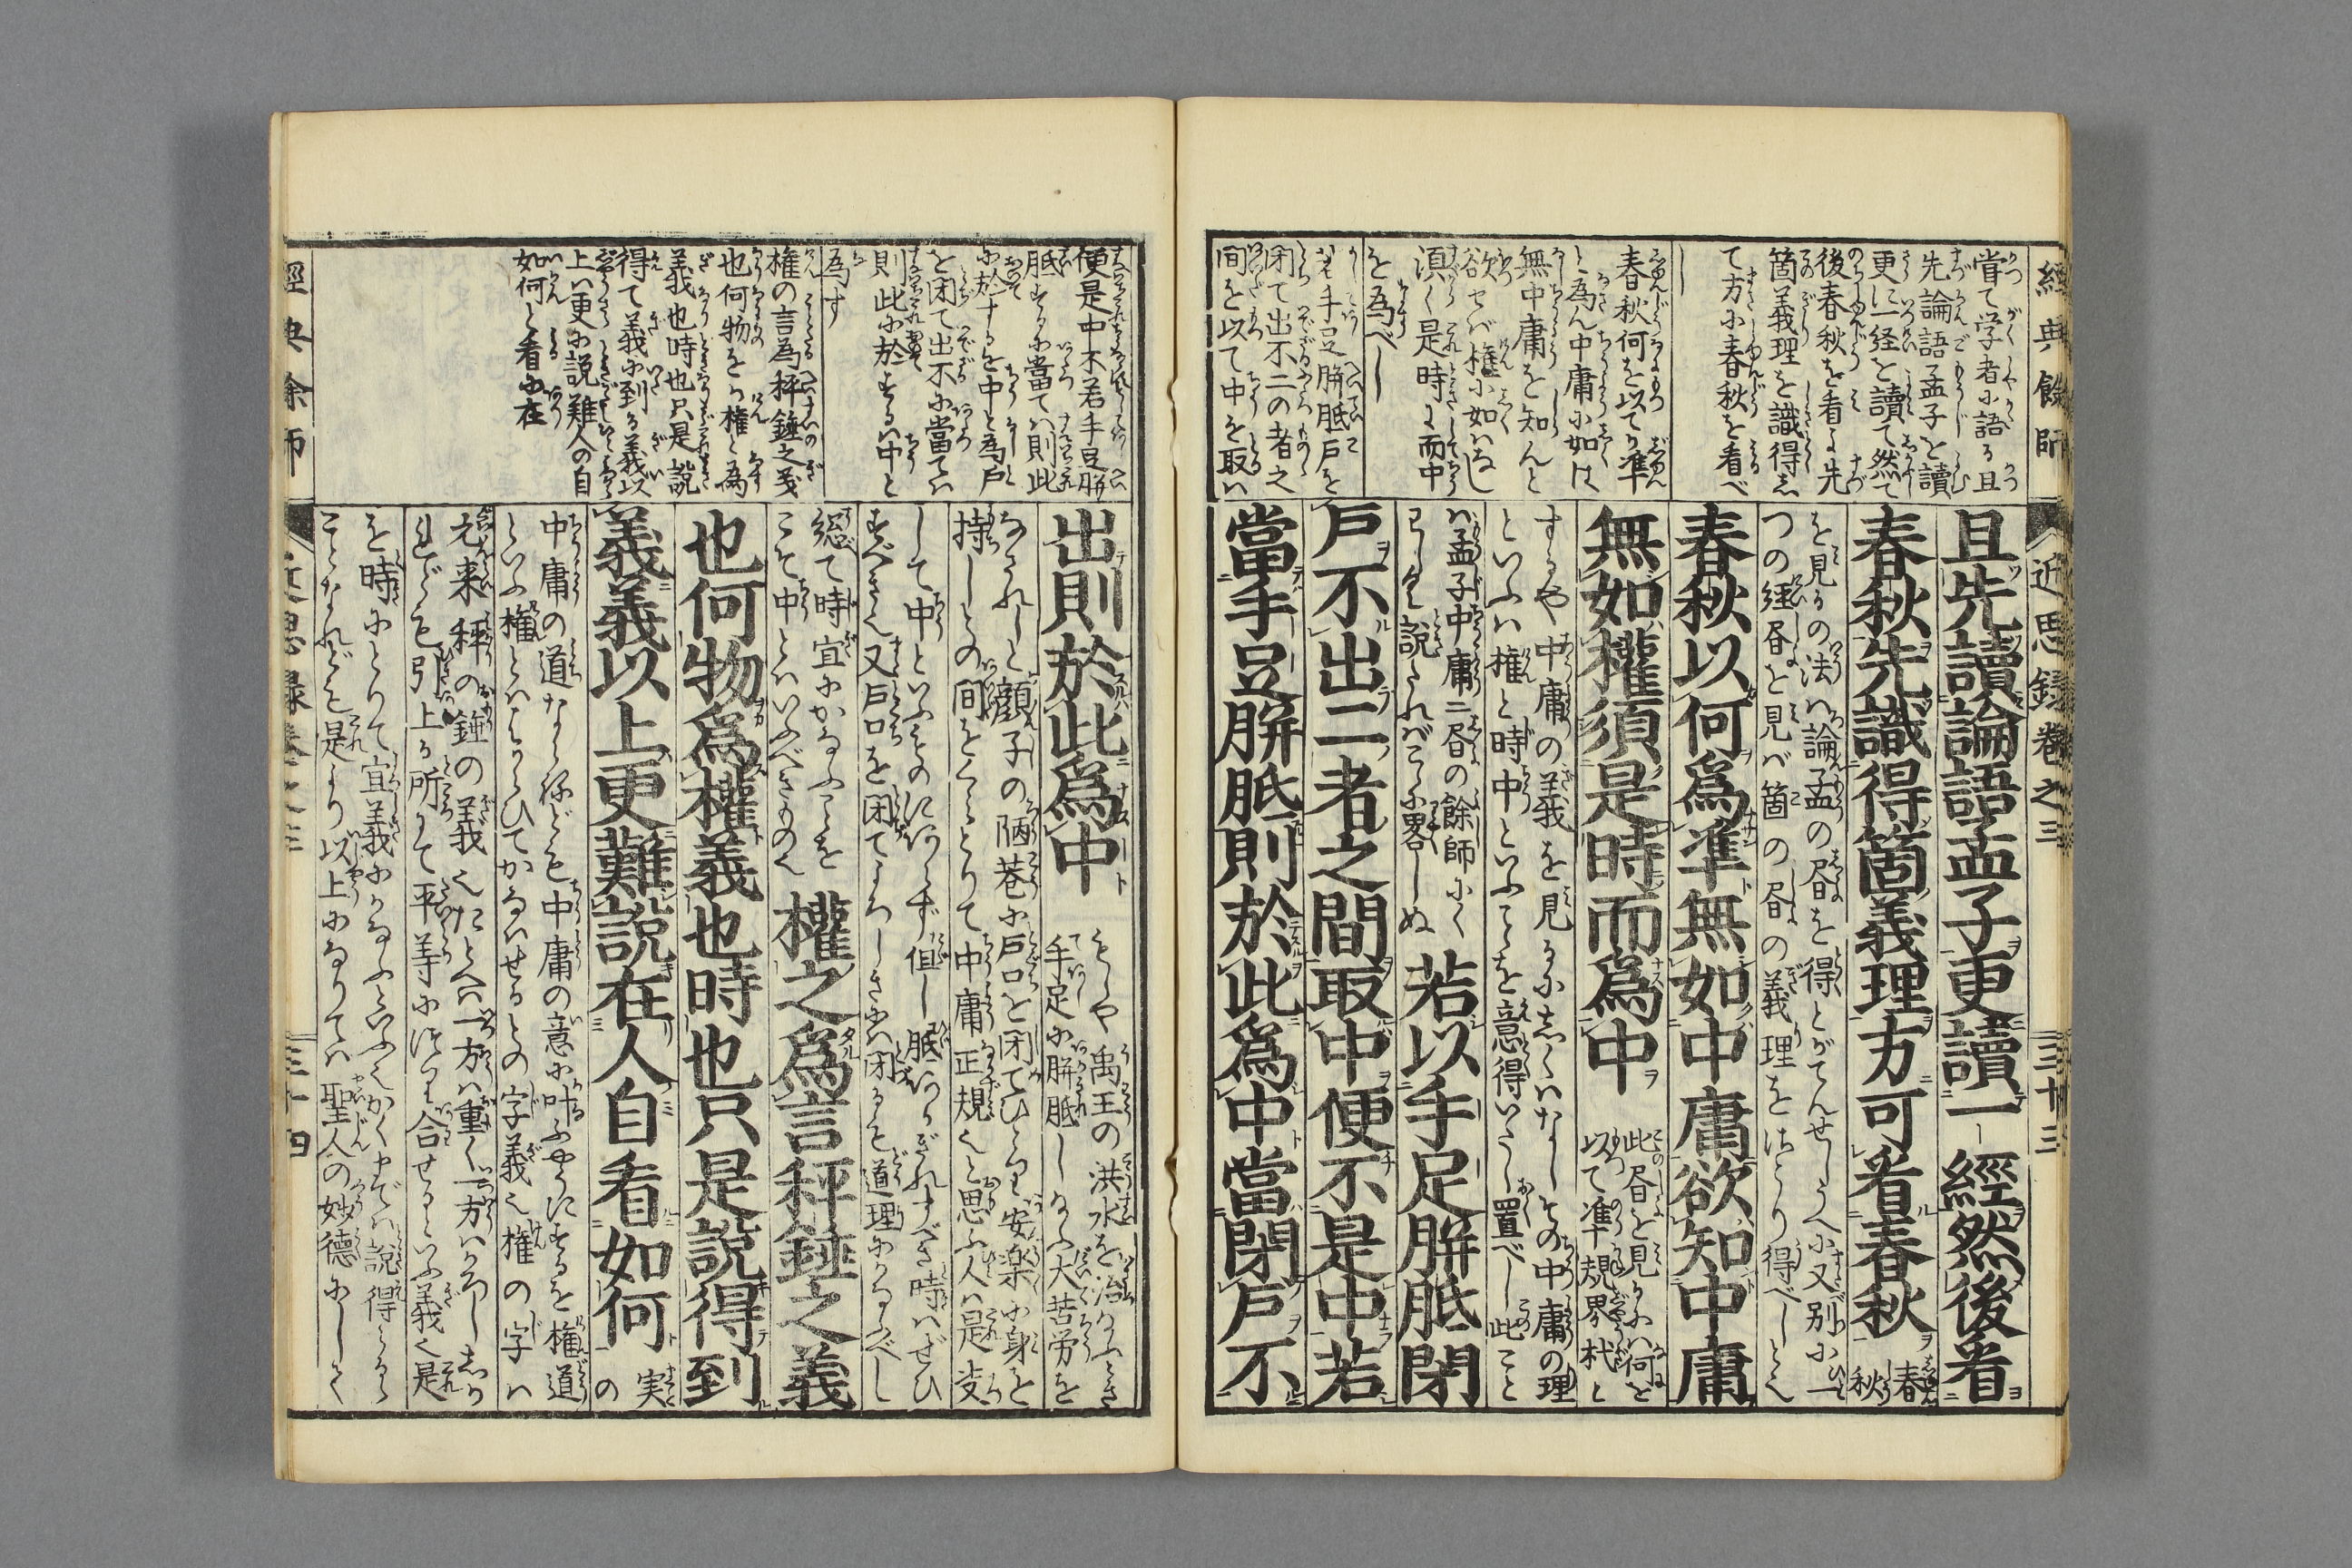 經典餘師
近思録巻之三
三十三
甞て学者に語る且
先論語孟子を讀
更に一経を讀て然て
後春秋を看よ先
箇義理を識得し
て方に春秋を看べ
し
春秋何を以てか準
と為ん中庸に如は
無中庸を知んと
欲せば権に如はなし
湏く是時に而中
を為べし
若手足胼胝戸を
閉て出不二の者之
間を以て中を取は
且先讀論語孟子更讀一經然後看
春秋先識得箇義理方可看春秋
春秋
を見るの法は論孟の書を得とがてんせしうへに又別に一
つの経書を見ば箇の書の義理をさとり得べしとく
春秋以何爲準無如中庸欲知中庸
無如權須是時而爲中
此書を見るには何を
以て準規界杙と
するや中庸の義を見るにしくはなしその中庸の理
といふは権と時中といふことを意得いたし置べし此こと
は孟子中庸二書の餘師にく
はしく説たればこゝに畧しぬ
若以手足胼胝閉
戸不出二者之間取中便不是中若
當手足胼胝則於此爲中當閉戸不
便是中不若手足胼
胝するに當ては則此
に於するを中と為戸
を閉て出不に當ては
則此に於するは中と
為す
権の言為秤錘之義
也何物をか権と為
義也時也只是説
得て義に到る義以
上は更に説難人の自
如何と看に在
出則於此爲中
もしや禹王の洪水を治給ふとき
手足に胼胝し給ふ大苦労を
なされしと顔子の陋巷に戸口を閉てひとり安楽に身を
持しとの間をくらとりて中庸正規くと思ふ人は是支
して中といふものにあらず但し胝あかぎれすべき時はぜひ
すべきく又戸口を閉てよろしきには閉るを道理にかなふべし
総て時宜にかなふことを
こそ中とはいふべきものく
權之爲言秤錘之義
也何物爲權義也時也只是說得到
義義以上更難說在人自看如何
実
の
中庸の道ならねども中庸の意に叶ふやうにするを権道
といふ権とははからひてかなはせるとの字義く権の字は
元来秤の錘の義くたとへは一方は重く一方はかろし
れども引上る所にて平等につり合せるといふ義く是
を時にとりて宜義にかなふといふくかくまでは説得らる
ことなれども是より以上になりては聖人の妙徳にして
經典余師
近思録巻之三
三十四